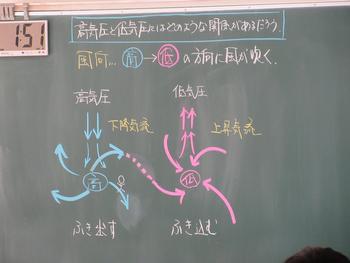 1:51
高気圧と低気圧にはどのような関係があるだろう
風向… 高 → 低 の方向に風が吹く.
高気圧
低気圧
下降気流
上昇気流
高
低
ふき出す
ふき込む